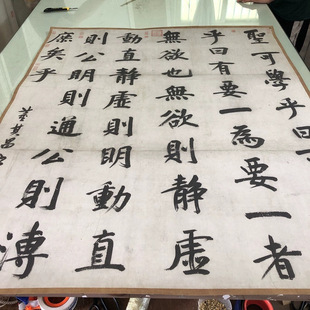 聖可學乎曰
乎曰有要一為要一者
無欲也無欲則静虛
動直静虛則明動直
則公明則通公則溥
庶矣乎
董其昌